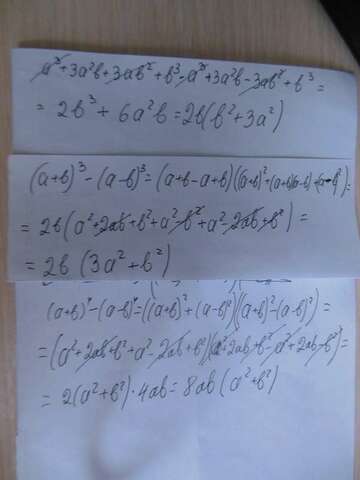 a³+3a²b+3ab²+b³-a³+3a²b-3ab²+b³=
=2b³+6a²b=2b(b²+3a²)
(a+b)³-(a-b)³=(a+b-a+b)((a+b)²+(a+b)(a-b)+(a-b)²)=
=2b(a²+2ab+b²+a²-b²+a²-2ab+b²)=
=2b(3a²+b²)
(a+b)⁴-(a-b)⁴=((a+b)²+(a-b)²)((a+b)²-(a-b)²)=
=(a²+2ab+b²+a²-2ab+b²)(a²+2ab+b²-a²+2ab-b²)=
=2(a²+b²)·4ab=8ab(a²+b²)